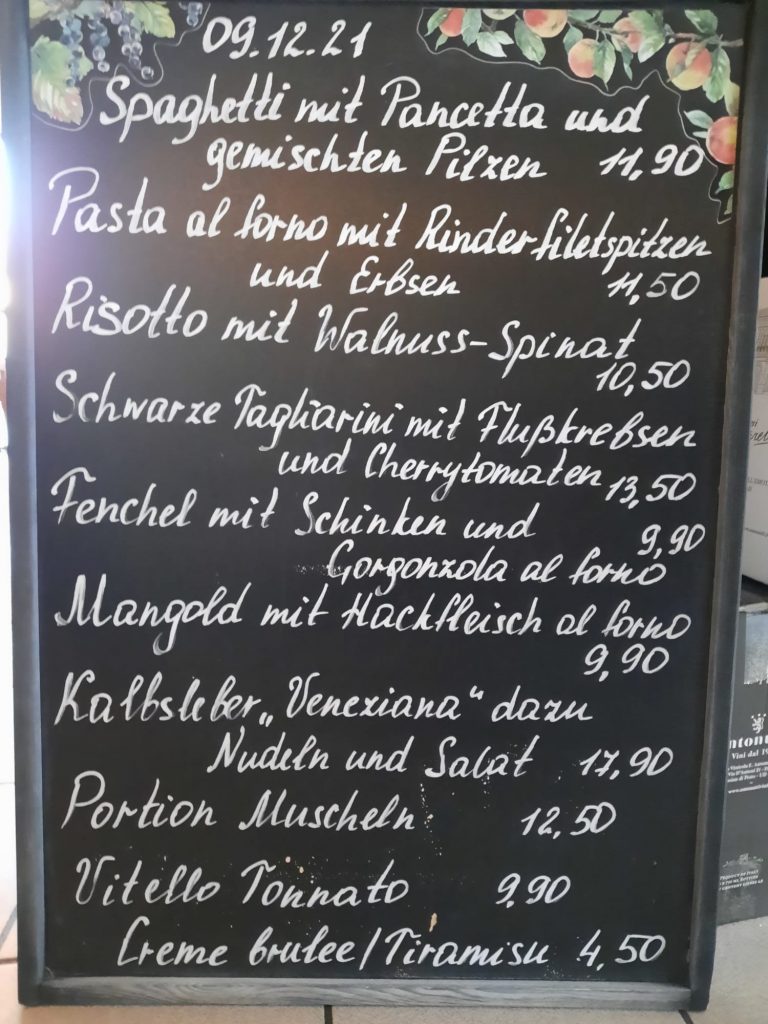 09.12.21
Spaghetti mit Pancetta und
gemischten Pilzen 11,90
Pasta al forno mit Rinderfiletspitzen
und Erbsen 11,50
Risotto mit Walnuss-Spinat
10,50
Schwarze Tagliarini mit Flußkrebsen
und Cherrytomaten 13,50
Fenchel mit Schinken und 9,90
Gorgonzola al forno
Mangold mit Hackfleisch al forno
9,90
Kalbsleber „Veneziana“ dazu
Nudeln und Salat 17,90
Portion Muscheln 12,50
Vitello Tonnato 9,90
Creme brulee/Tiramisu 4,50
Vini dal 19